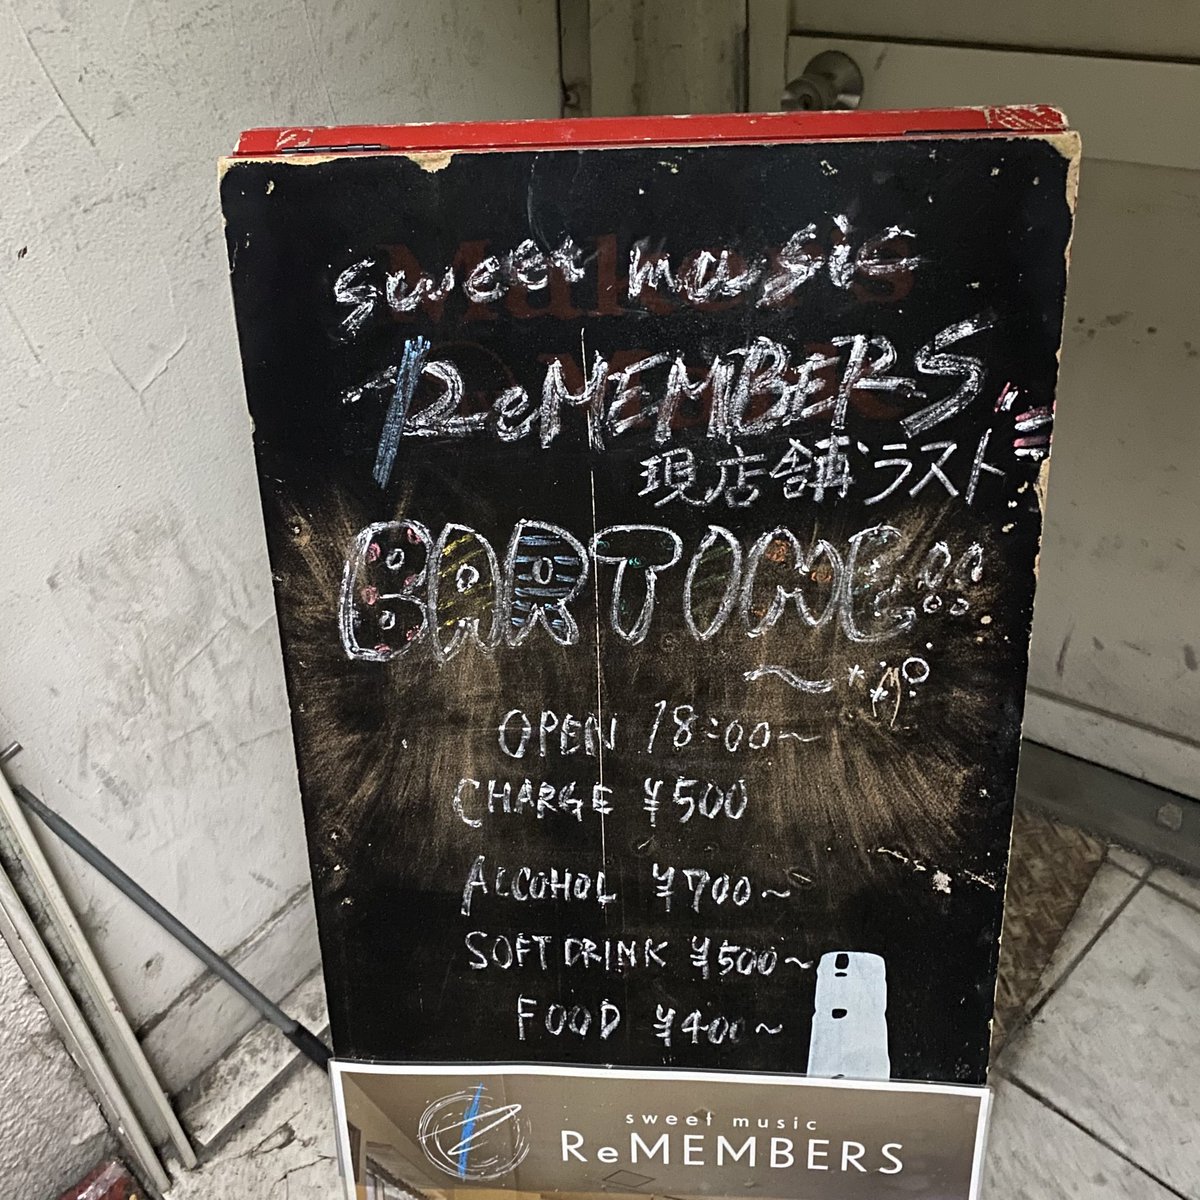 sweet music
ReMEMBERS
現店舗ラスト
BARTIME!!
〜
OPEN 18:00〜
CHARGE ¥500
ALCOHOL ¥700〜
SOFT DRINK ¥500〜
FOOD ¥400〜
sweet music
ReMEMBERS